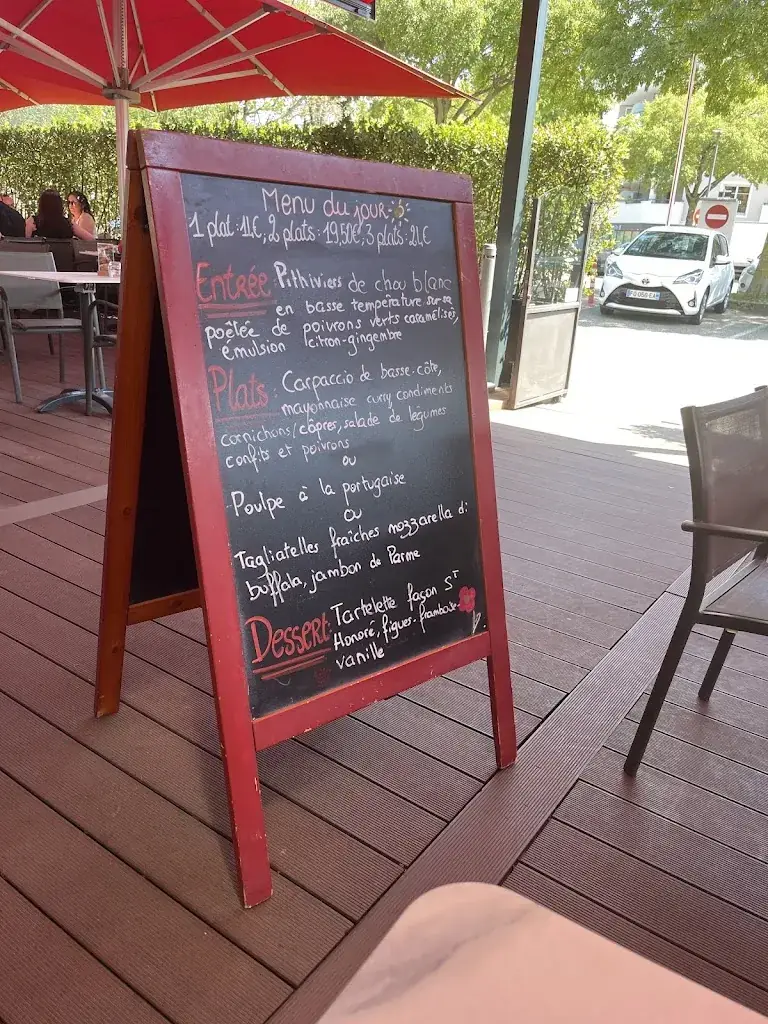 Menu du jour
1 plat: 11€, 2 plats: 19,50€, 3 plats: 21€
Entrée: Pithiviers de chou blanc
en basse température sur sa
poêlée de poivrons verts caramélisés,
émulsion citron-gingembre
Plats: Carpaccio de basse-côte,
mayonnaise curry, condiments
cornichons/câpres, salade de légumes
confits et poivrons
ou
Poulpe à la portugaise
ou
Tagliatelles fraîches mozzarella di
buffala, jambon de Parme
Dessert: Tartelette façon St
Honoré, figues-framboise-
vanille